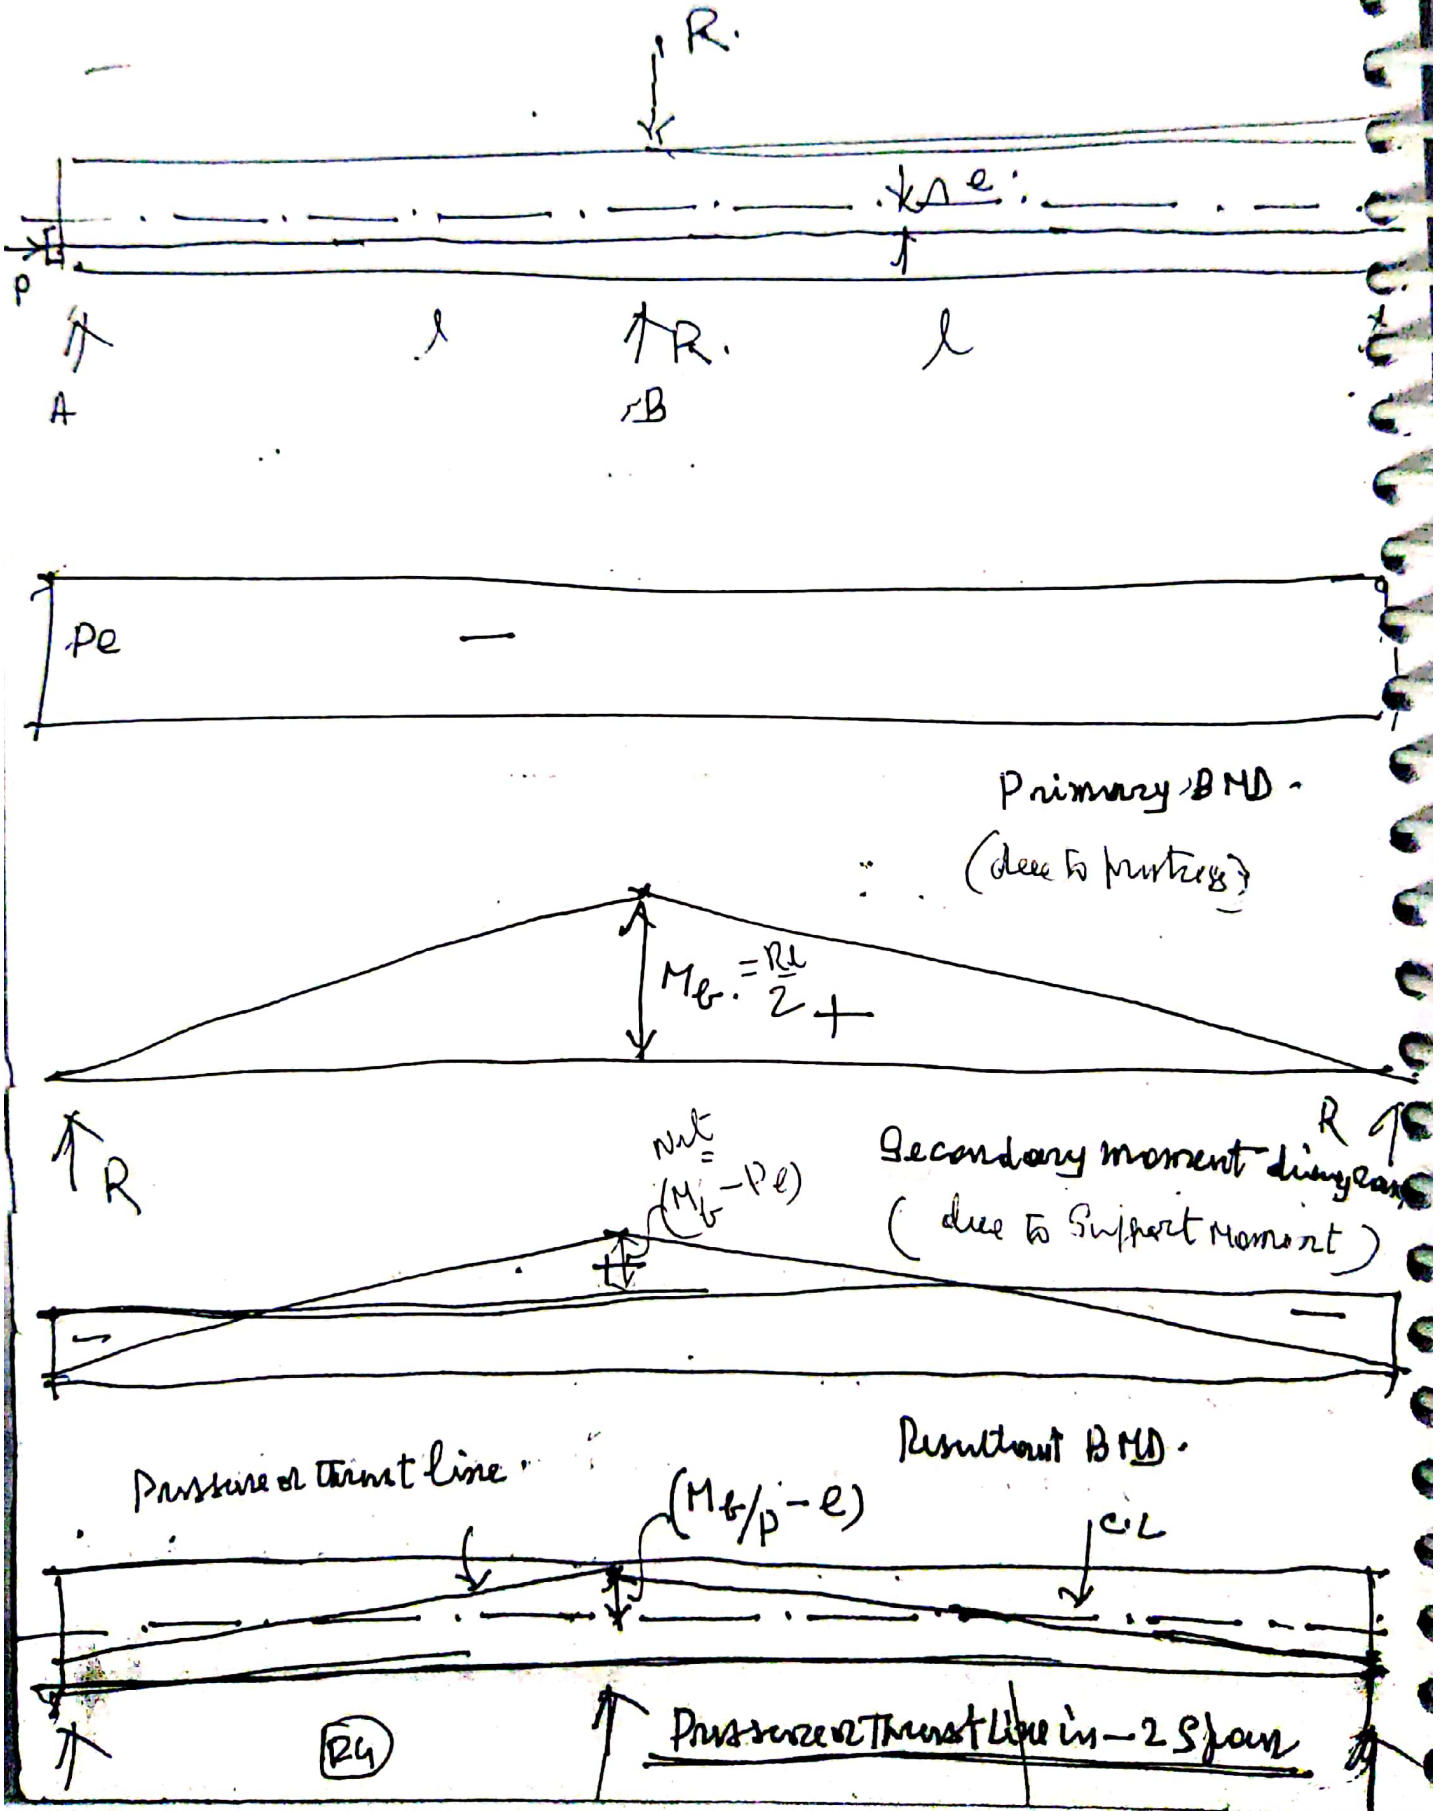 R.
e
P
l
R.
l
A
B
Pe
—
Primary BMD.
(due to prestress)
M_b. = Rl/2 +
R
R
Net
(M_b - Pe)
Secondary moment diagram
(due to Support Moment)
+
—
—
Resultant BMD.
Pressure or Thrust line.
(M_b/P - e)
C.L
R4
Pressure or Thrust Line in - 2 Span